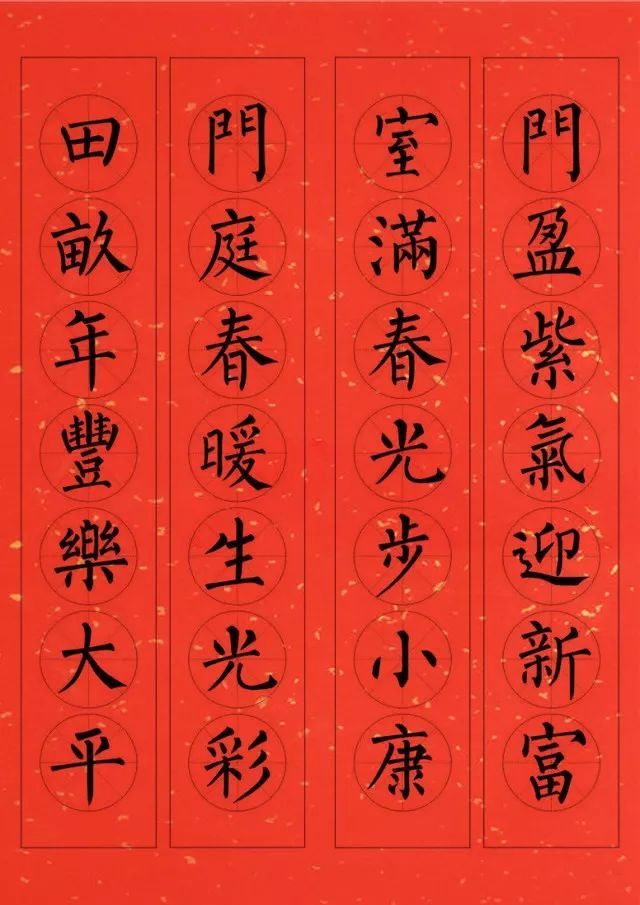 門盈紫氣迎新富
室滿春光步小康
門庭春暖生光彩
田畝年豐樂大平